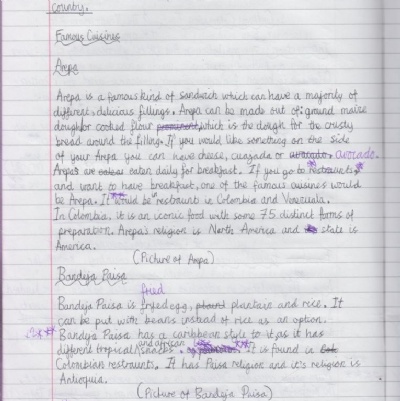 County.
Famous Cuisines
Arepa
Arepa is a famous kind of sandwich which can have a majority of
different, delicious fillings. Arepa can be made out of: ground maize
dough or cooked flour which is the dough for the crusty
bread around the filling. If you would like something on the side
of your Arepa you can have cheese, cuajada or avocado. avocado.
Arepa's are eaten daily for breakfast. If you go to restraunts
and want to have breakfast, one of the famous cuisines would
be Arepa. It would be in restraunt in Colombia and
In Colombia, it is an iconic food with some 75 distinct forms of
preparation. Arepa's religion is North America and state is
America.
(Picture of Arepa)
Bandeja Paisa
fried
Bandeja Paisa is fried egg, plantain and rice. It
can be put with beans instead of rice as an option.
Bandeja Paisa has a caribbean style to it, as it has
and african
different tropical snacks. It is found in
Colombian restraunts. It has Paisa religion and it's religion is
Antioquia.
(Picture of Bandeja Paisa)